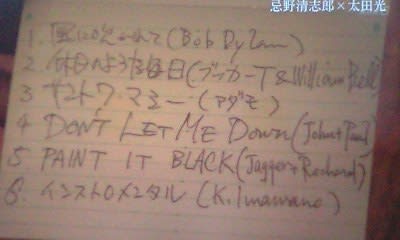 忌野清志郎×太田光
1. 風に吹かれて(Bob Dylan)
2. 休日のような毎日(ブッカーT & William Bell)
3 サントワ・マミー(アダモ)
4 DON'T LET ME Down(John+Paul)
5 PAINT IT BLACK(Jagger+Richard)
6. インストロメンタル(K. Imawano)